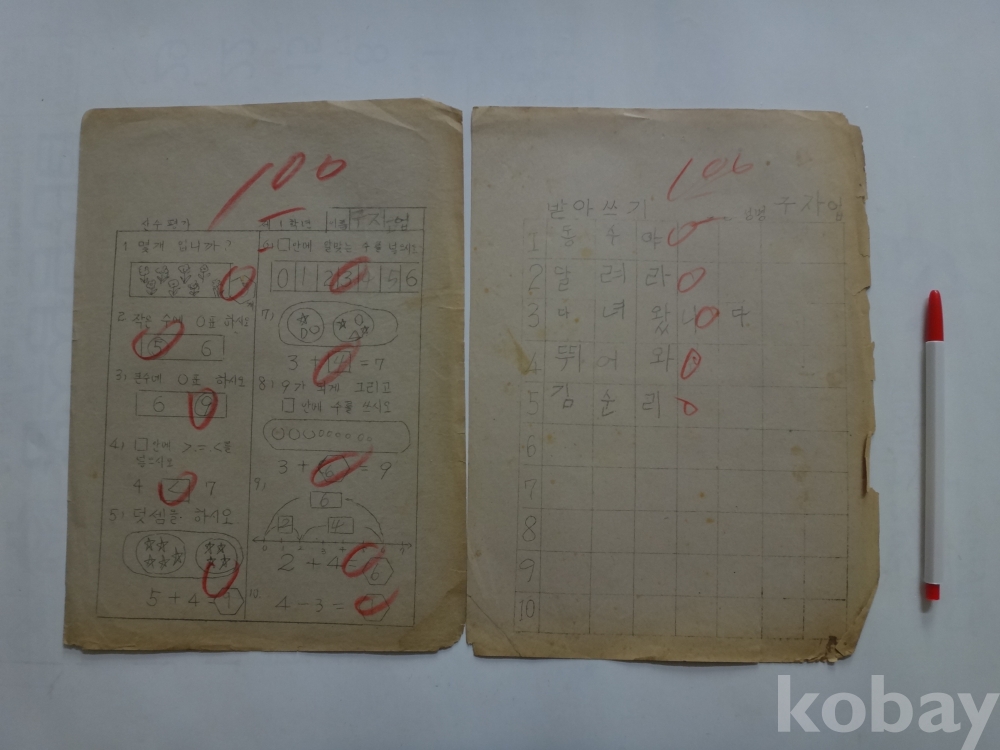 100
산수평가
제 1 학년
이름 주자업
1. 몇개 입니까?
2. 작은 수에 O표 하시오
5 6
3. 큰수에 O표 하시오
6 9
4. □안에 >=<를
넣으시오
4 < 7
5. 덧셈을 하시오
5+4=
6. □안에 알맞는 수를 넣으시오
0 1 2 3 4 5 6
7.
3+4=7
8. 9가 되게 그리고
□안에 수를 쓰시오
3+6=9
9.
6
2 4
2+4=6
10.
4-3=
100
받아쓰기
성명 주자업
1 동수야
2 달려라
3 다녀왔니다
4 뛰어와
5 김순리
6
7
8
9
10
kobay